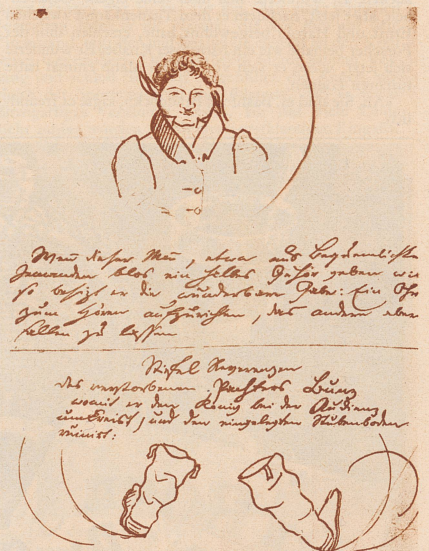 Wenn dieser Mañ, etwa aus Bequemlichk
Jemanden blos ein halbes Gehör geben wi
so besizt er die wunderbare Gabe: Ein Ohr
zum hören aufzurichten, das andere aber
fallen zu lassen
Stiefel Reverenzen
des verstorbenen Pachters Bunz
womit er den König bei der Audienz
umkreist, und den eingelegten Stubenboden
ruinirt: